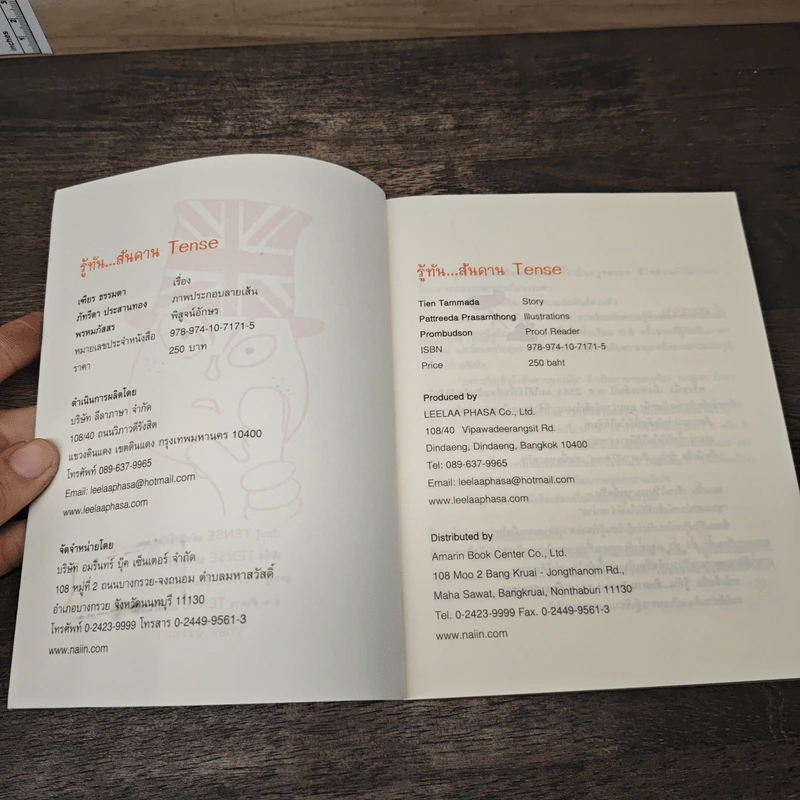 รู้ทัน...สันดาน Tense
เฑียร ธรรมดา เรื่อง
ภัทรีดา ประสานทอง ภาพประกอบลายเส้น
พรหมภัสสร พิสูจน์อักษร
หมายเลขประจำหนังสือ 978-974-10-7171-5
ราคา 250 บาท
ดำเนินการผลิตโดย
บริษัท ลีลาภาษา จำกัด
108/40 ถนนวิภาวดีรังสิต
แขวงดินแดง เขตดินแดง กรุงเทพมหานคร 10400
โทรศัพท์ 089-637-9965
Email: leelaaphasa@hotmail.com
www.leelaaphasa.com
จัดจำหน่ายโดย
บริษัท อมรินทร์ บุ๊ค เซ็นเตอร์ จำกัด
108 หมู่ที่ 2 ถนนบางกรวย-จงถนอม ตำบลมหาสวัสดิ์
อำเภอบางกรวย จังหวัดนนทบุรี 11130
โทรศัพท์ 0-2423-9999 โทรสาร 0-2449-9561-3
www.naiin.com
รู้ทัน...สันดาน Tense
Tien Tammada Story
Pattreeda Prasarnthong Illustrations
Prombudson Proof Reader
ISBN 978-974-10-7171-5
Price 250 baht
Produced by
LEELAA PHASA Co., Ltd.
108/40 Vipawadeerangsit Rd.
Dindaeng, Dindaeng, Bangkok 10400
Tel: 089-637-9965
Email: leelaaphasa@hotmail.com
www.leelaaphasa.com
Distributed by
Amarin Book Center Co., Ltd.
108 Moo 2 Bang Kruai - Jongthanom Rd.,
Maha Sawat, Bangkruai, Nonthaburi 11130
Tel. 0-2423-9999 Fax. 0-2449-9561-3
www.naiin.com